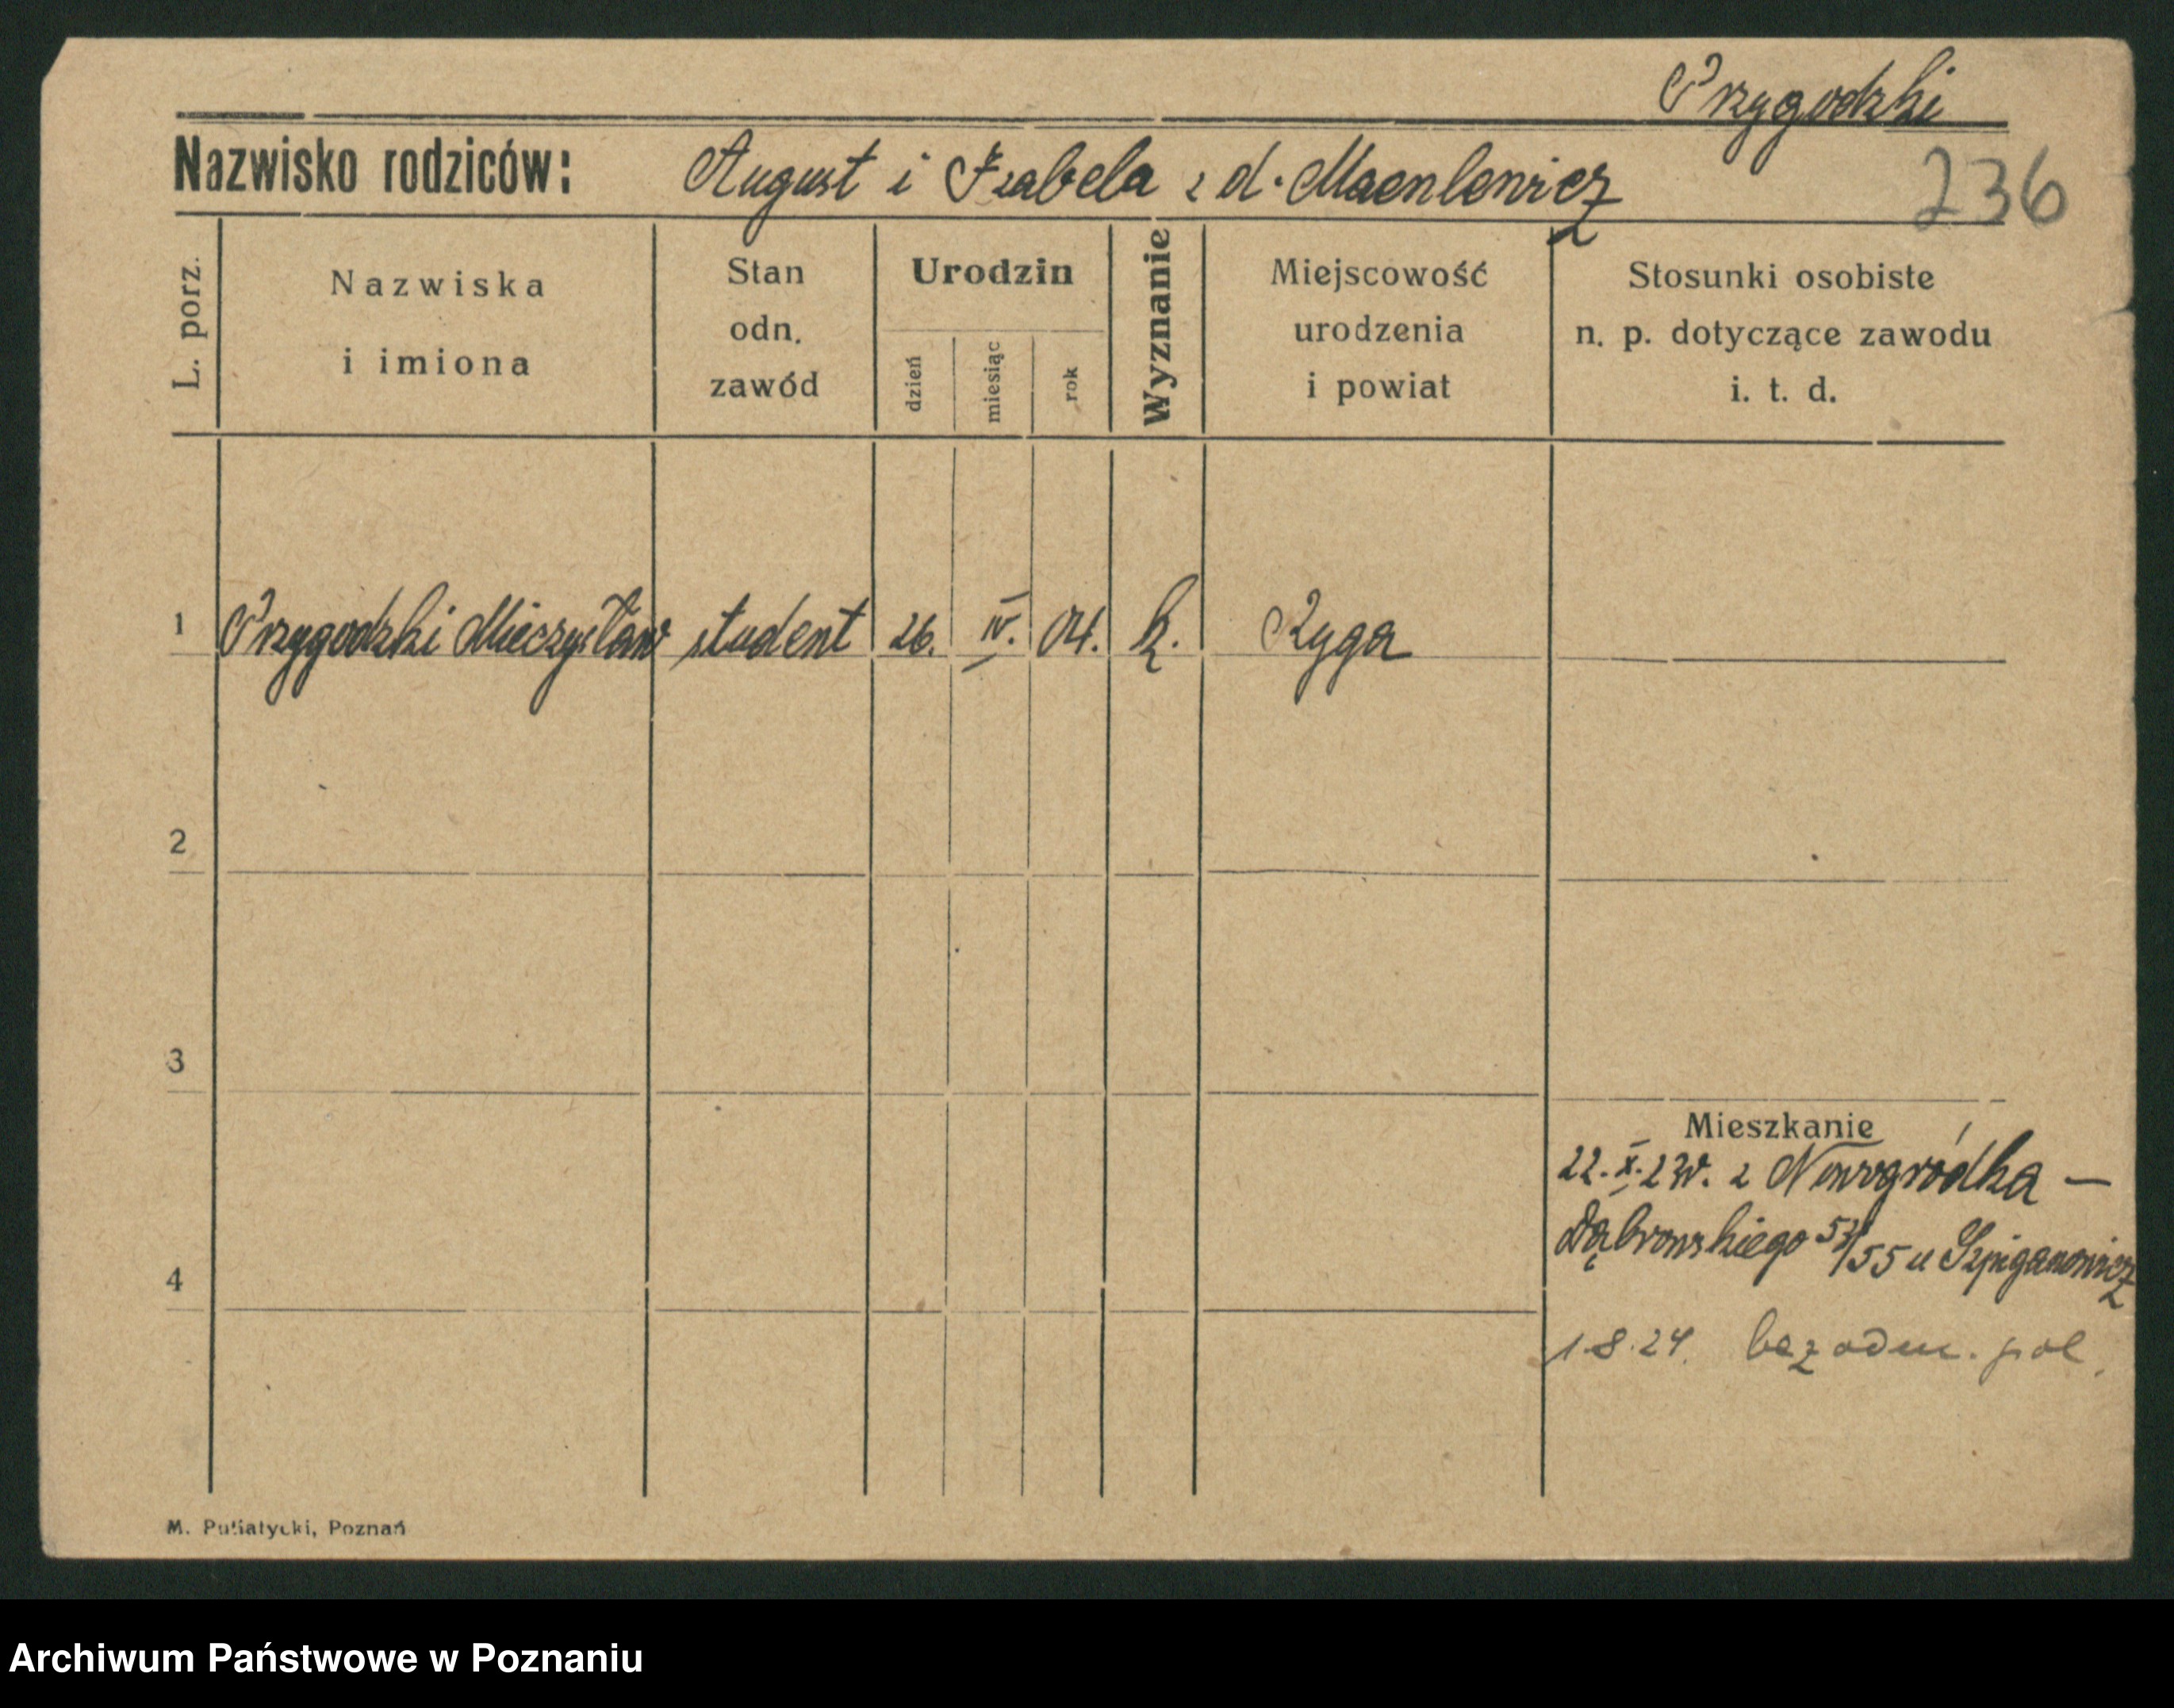 Przygodzki
Nazwisko rodziców: August i Izabela z d. Maenlewicz
236
L. porz.
Nazwiska
i imiona
Stan
odn.
zawód
Urodzin
dzień
miesiąc
rok
Wyznanie
Miejscowość
urodzenia
i powiat
Stosunki osobiste
n. p. dotyczące zawodu
i. t. d.
1 Przygodzki Mieczysław student 26. IV. 04. k. Ryga
2
3
4
Mieszkanie
22. X. 23r. z Nowogródka —
Dąbrowskiego 53/55 u Szpiganowicz
1.8.24. bez odm. pol.
M. Putiatycki, Poznań
Archiwum Państwowe w Poznaniu